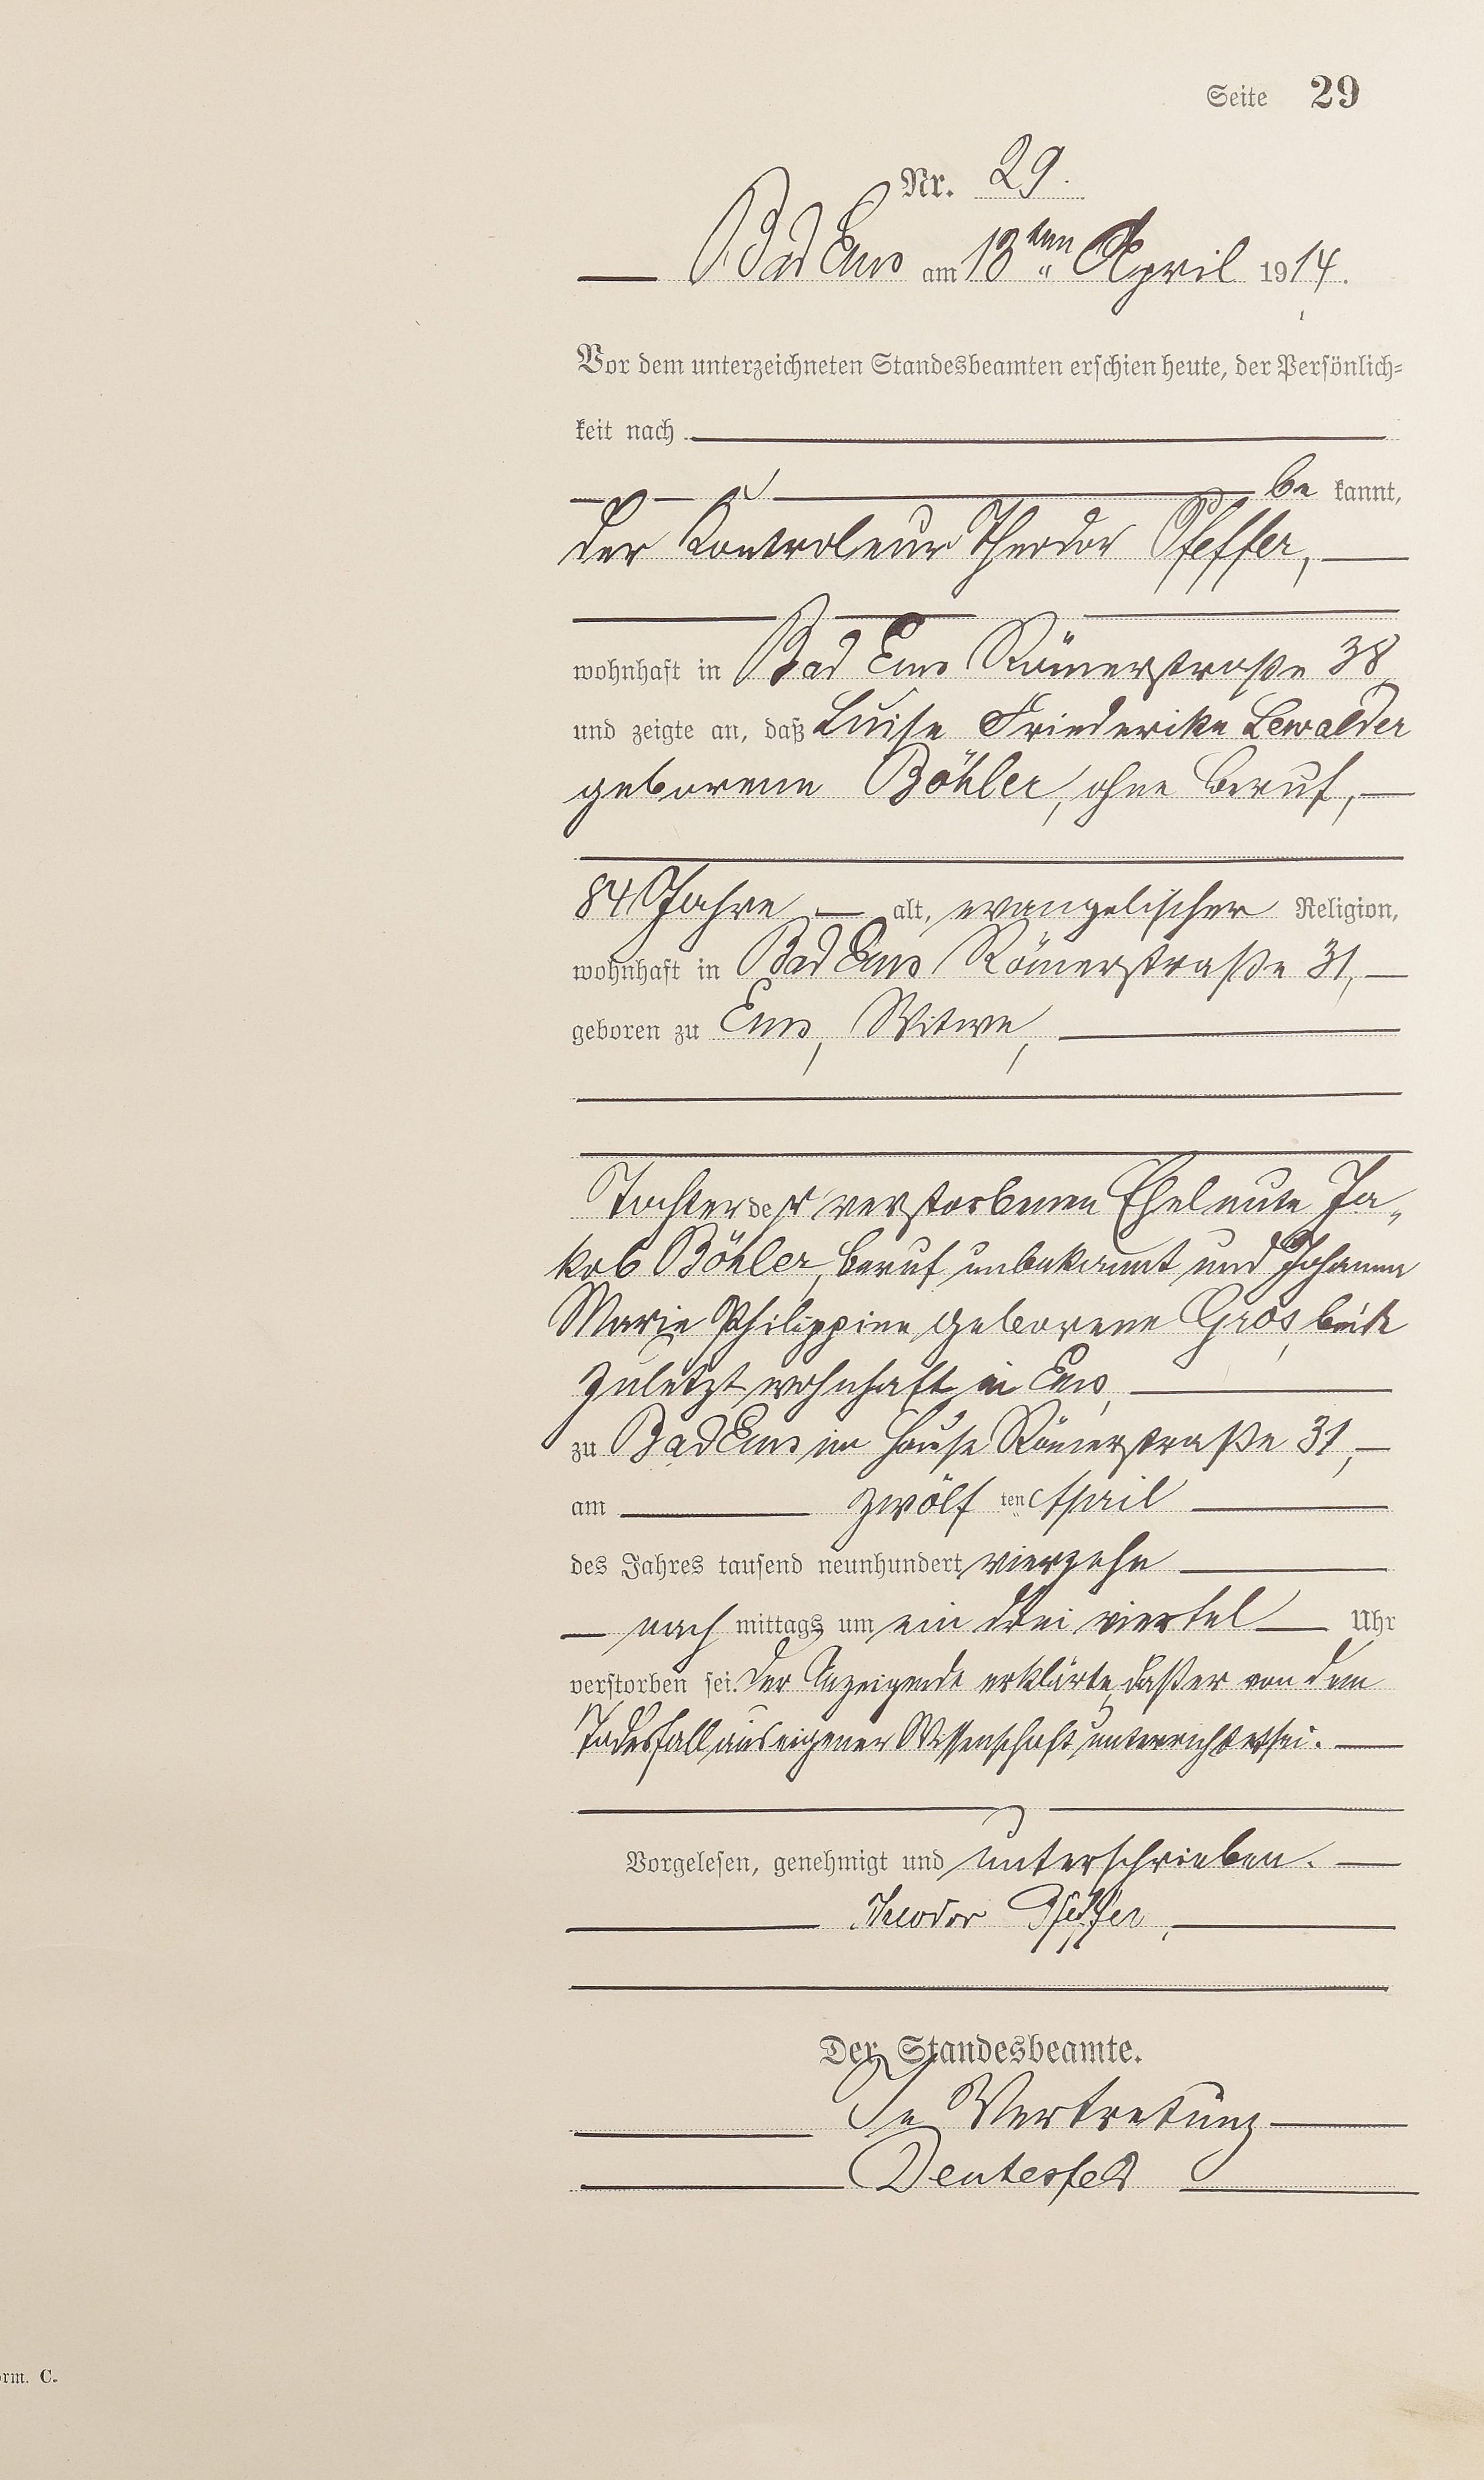 Seite 29
Nr. 29.
Bad Ems am 13ten April 1914.
Vor dem unterzeichneten Standesbeamten erschien heute, der Persönlich=
keit nach
be kannt,
der Kontroleur Theodor Pfeffer,
wohnhaft in Bad Ems Römerstraße 38,
und zeigte an, daß Luise Friederike Lewalder
geborene Böhler, ohne Beruf,
84 Jahre alt, evangelischer Religion,
wohnhaft in Bad Ems Römerstraße 31,
geboren zu Ems, Witwe,
Tochter der verstorbenen Eheleute Ja„
kob Böhler, Beruf unbekannt und Johanna
Marie Philippine geborene Gros, beide
zuletzt wohnhaft in Ems,
zu Bad Ems im Hause Römerstraße 31,
am zwölf ten April
des Jahres tausend neunhundert vierzehn
nach mittags um ein drei viertel Uhr
verstorben sei. Der Anzeigende erklärte, daß er von dem
Todesfall aus eigener Wissenschaft unterrichtet sei.
Vorgelesen, genehmigt und unterschrieben.
Theodor Pfeffer,
Der Standesbeamte.
In Vertretung
orm. C.